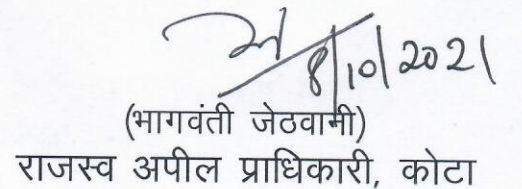 8/10/2021
(भागवंती जेठवानी)
राजस्व अपील प्राधिकारी, कोटा